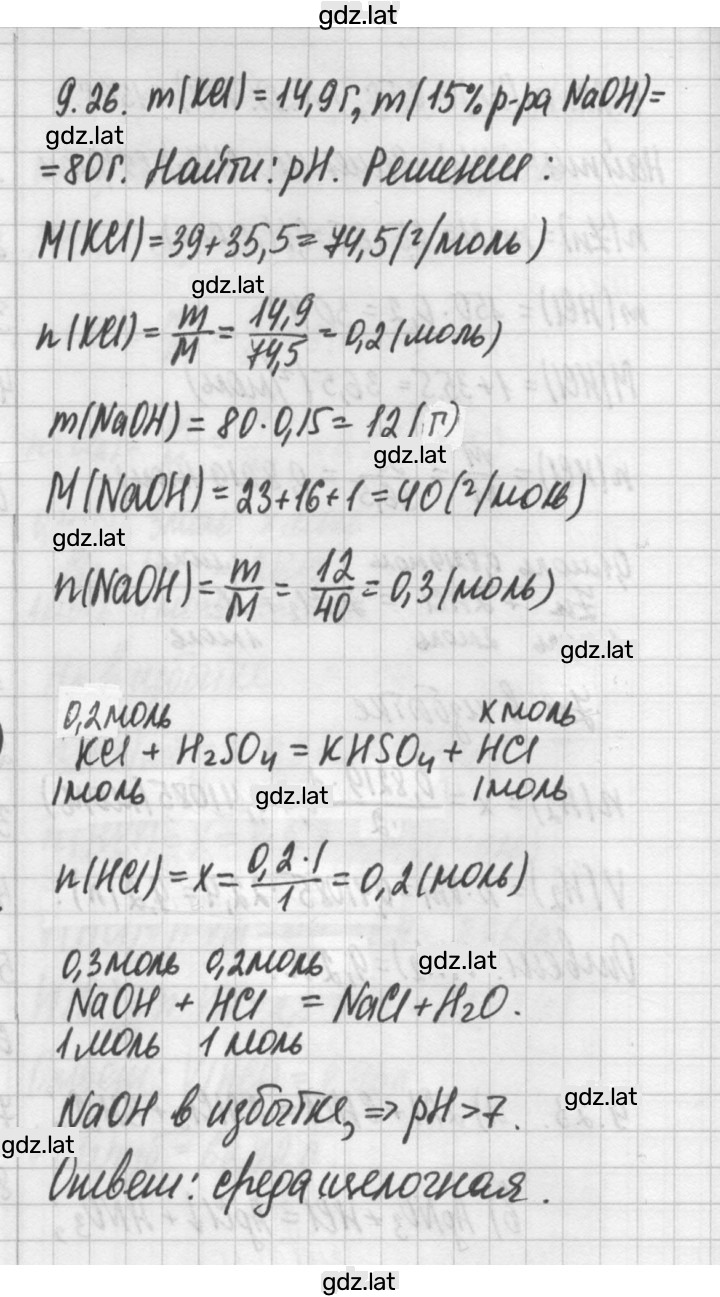 gdz.lat
9.26. m(KCl) = 14,9г, m(15% р-ра NaOH)=
gdz.lat
=80г. Найти: pH. Решение:
M(KCl)=39+35,5=74,5(г/моль)
gdz.lat
n(KCl) = m/M = 14,9/74,5 = 0,2(моль)
m(NaOH) = 80·0,15= 12(г)
gdz.lat
M(NaOH)=23+16+1=40(г/моль)
gdz.lat
n(NaOH) = m/M = 12/40 = 0,3(моль)
gdz.lat
0,2моль x моль
KCl + H₂SO₄ = KHSO₄ + HCl
1моль gdz.lat 1моль
n(HCl) = x = 0,2·1/1 = 0,2(моль)
0,3моль 0,2моль gdz.lat
NaOH + HCl = NaCl + H₂O.
1моль 1моль
gdz.lat
NaOH в избытке, => pH>7.
gdz.lat
Ответ: среда щелочная.
gdz.lat